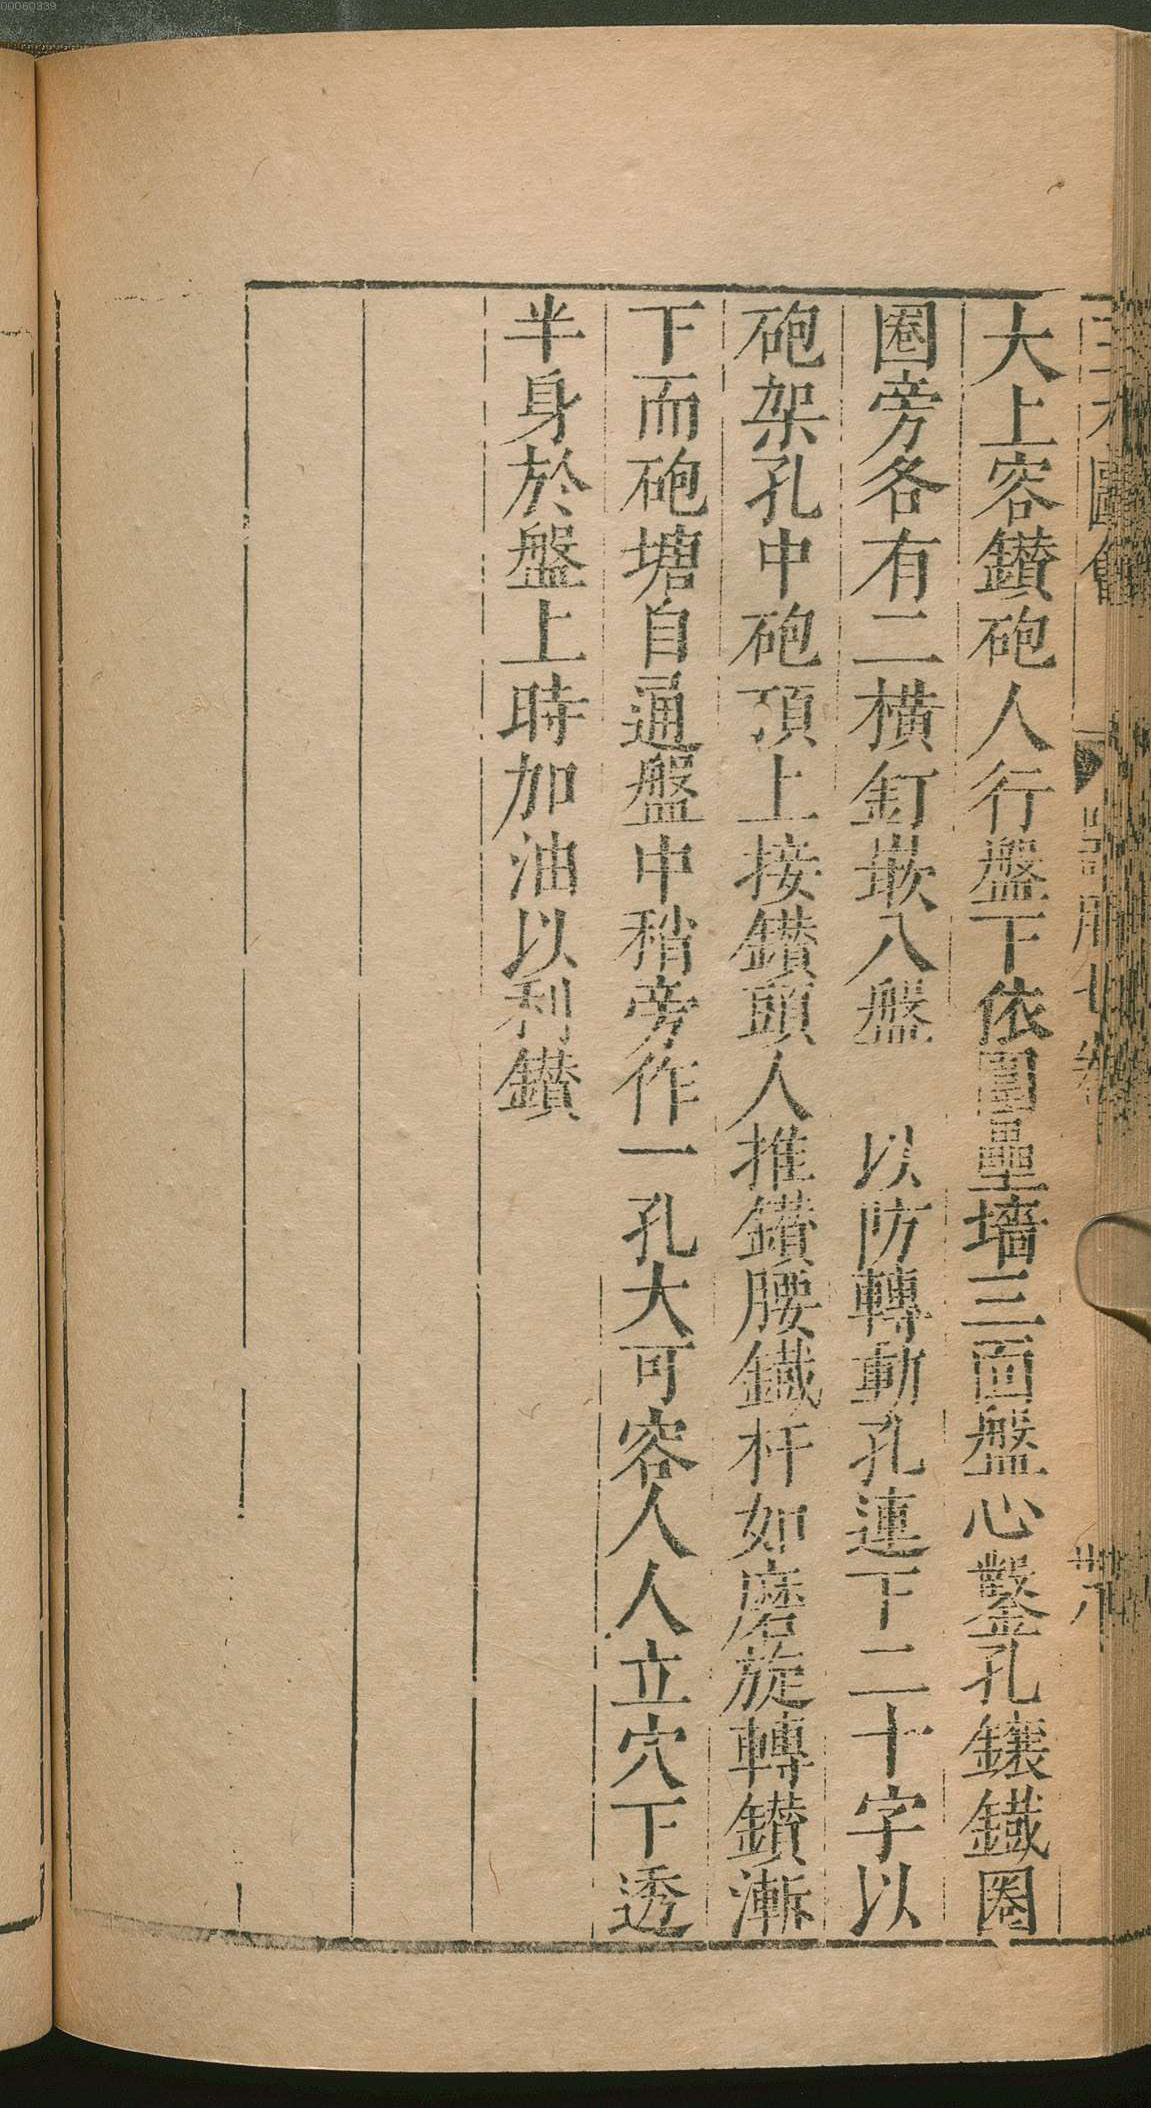 大上容鑚砲人行盤下依圓壘墻三面盤心鑿孔鑲鐡圈
圈旁各有二橫釘嵌入盤　以防轉動孔連下二十字以
砲架孔中砲頂上接鑚頭人推鑚腰鐡杆如磨旋轉鑚漸
下而砲塘自通盤中稍旁作一孔大可容人人立穴下透
半身於盤上時加油以利鑚
00060339